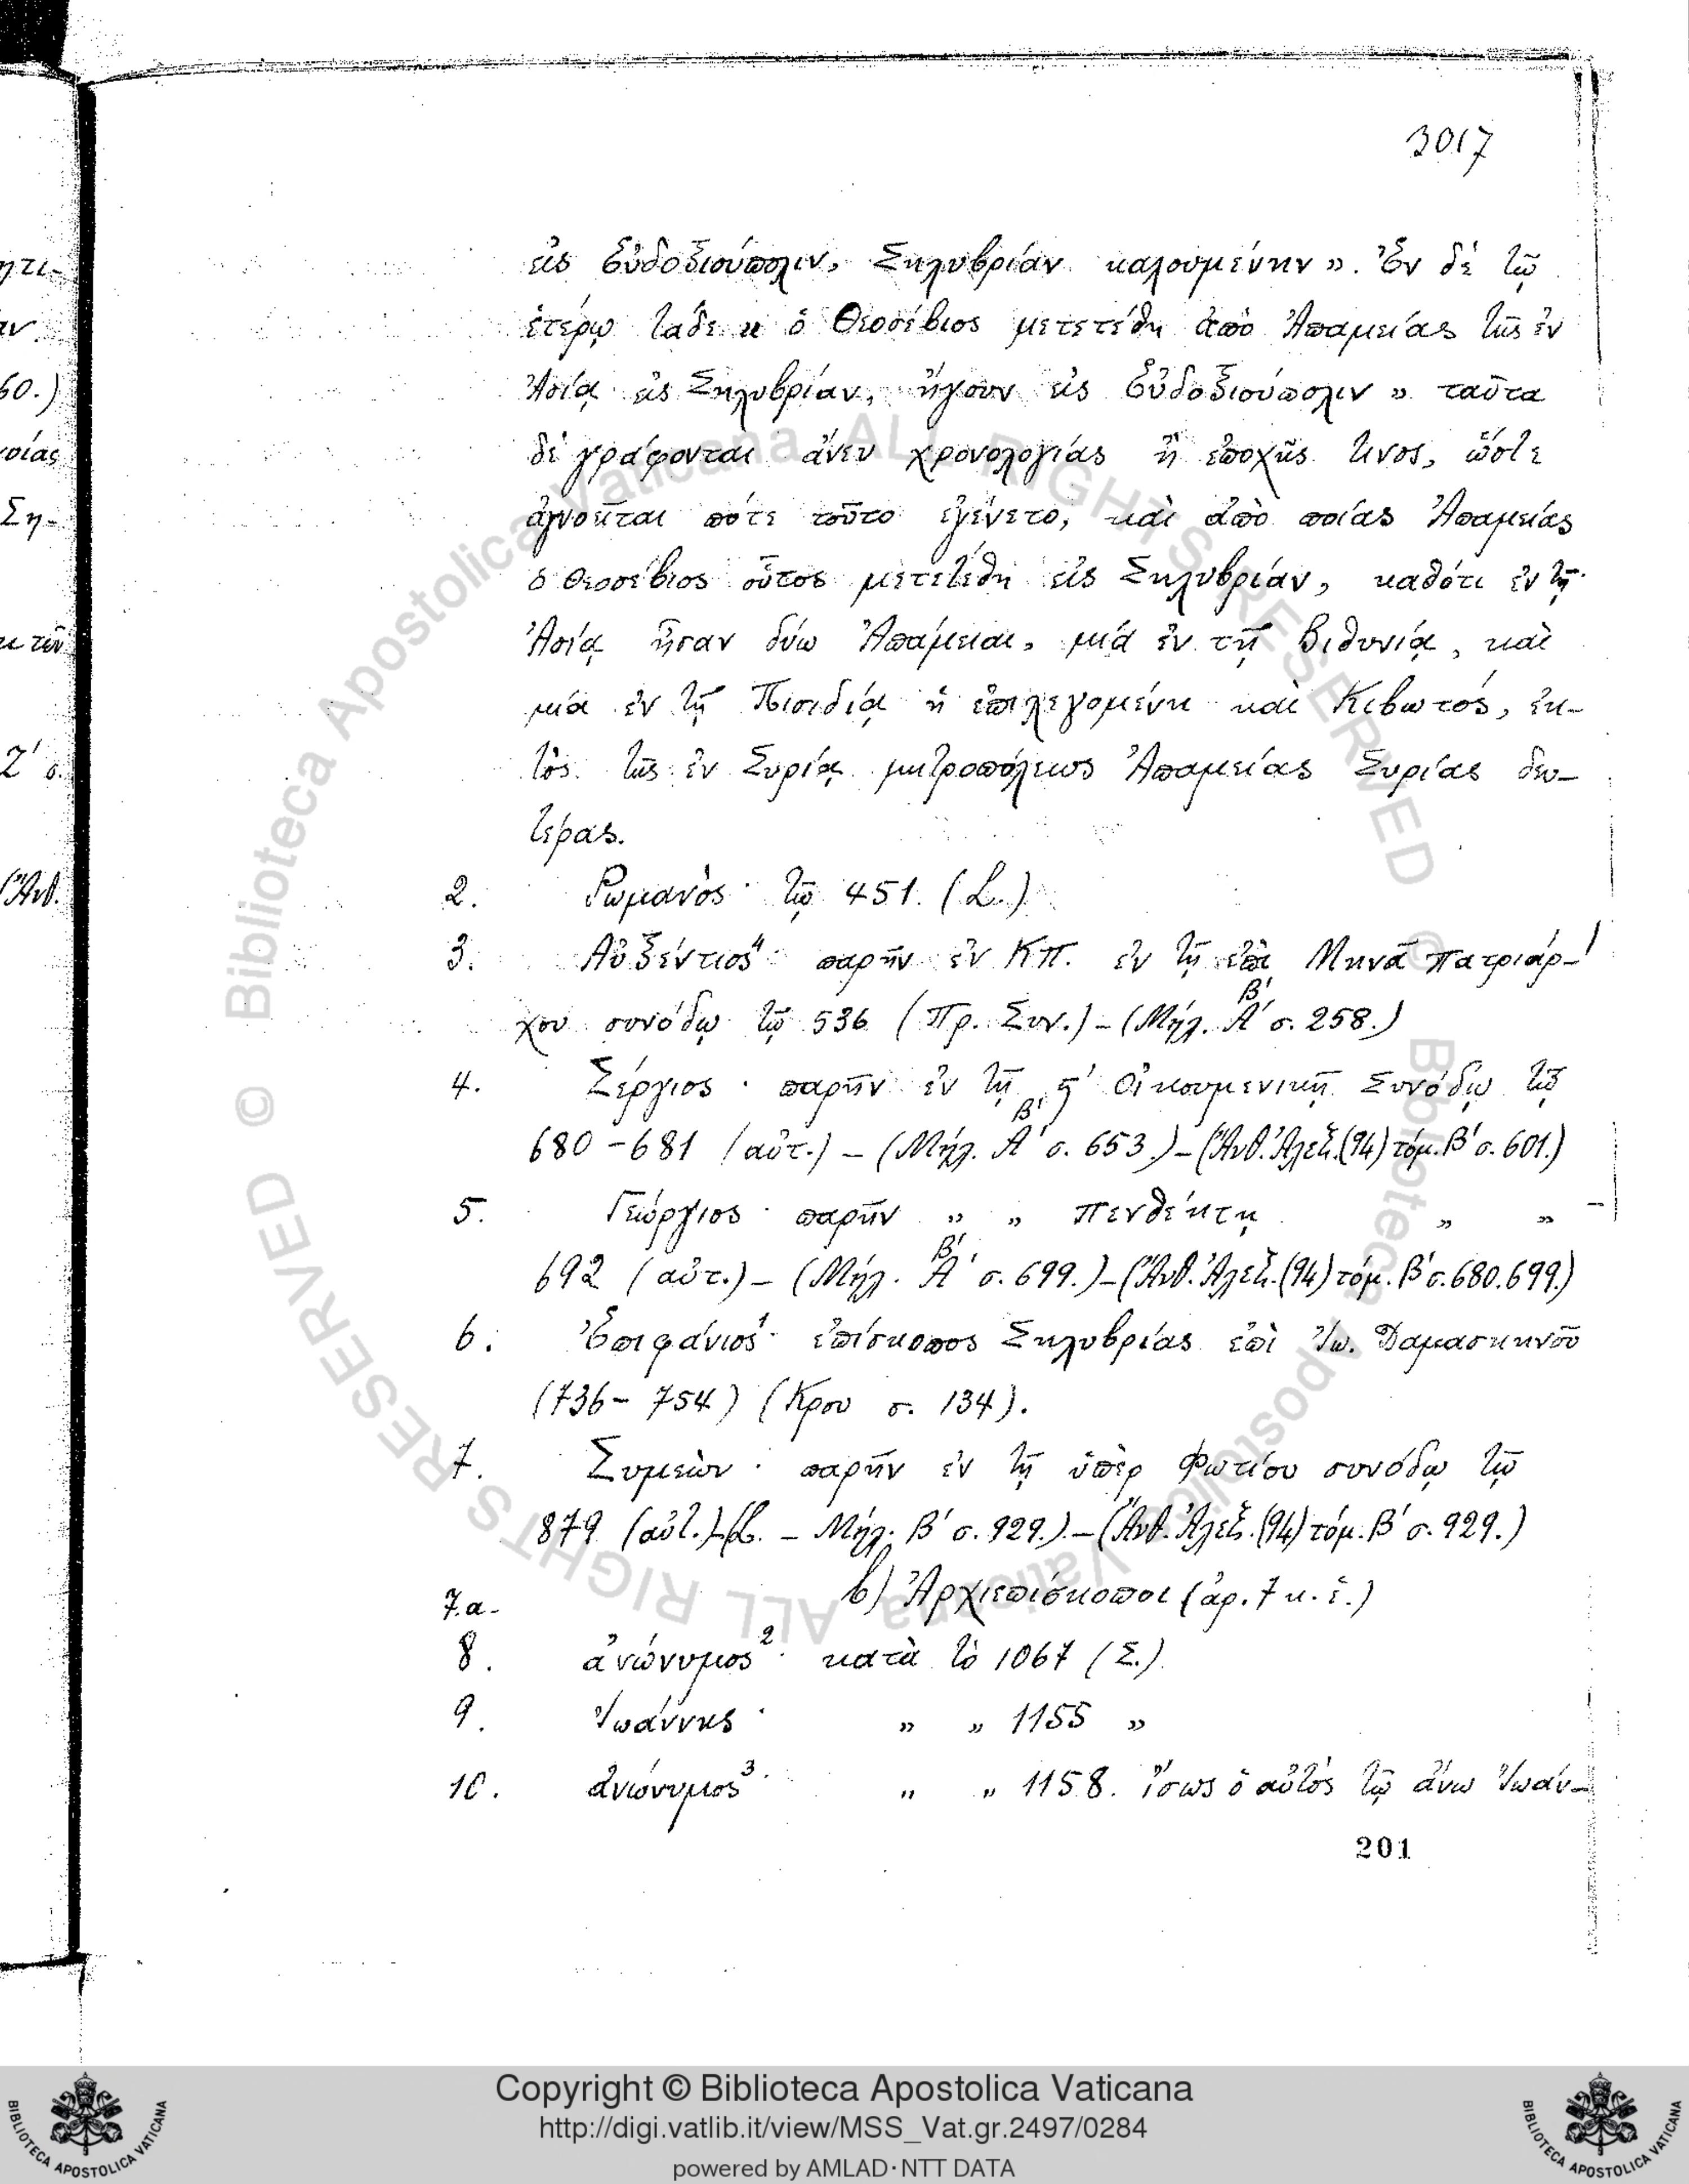 3017
εἰς Εὐδοξιούπολιν, Σηλυβρίαν καλουμένην». Ἐν δὲ τῷ
ἑτέρῳ τάδε « ὁ Θεοσέβιος μετετέθη ἀπὸ Ἀπαμείας τῆς ἐν
Ἀσίᾳ εἰς Σηλυβρίαν, ἤγουν εἰς Εὐδοξιούπολιν » ταῦτα
δὲ γράφονται ἄνευ χρονολογίας ἢ ἐποχῆς τινος, ὥστε
ἀγνοεῖται πότε τοῦτο ἐγένετο, καὶ ἀπὸ ποίας Ἀπαμείας
ὁ Θεοσέβιος οὗτος μετετέθη εἰς Σηλυβρίαν, καθότι ἐν τῇ
Ἀσίᾳ ἦσαν δύω Ἀπάμειαι, μιὰ ἐν τῇ Βιθυνίᾳ, καὶ
μία ἐν τῇ Πισιδίᾳ ἡ ἐπιλεγομένη καὶ Κιβωτός, ἐκ-
τὸς τῆς ἐν Συρίᾳ μητροπόλεως Ἀπαμείας Συρίας δευ-
τέρας.
2. Ῥωμανὸς· τῷ 451. (L.)
3. Αὐξέντιος⁴· παρῆν ἐν ΚΠ. ἐν τῇ ἐπὶ Μηνᾶ πατριάρ-
χου συνόδῳ τῷ 536 (Πρ. Συν.) - (Μήλ. Β' Α' σ. 258.)
4. Σέργιος · παρῆν ἐν τῇ ϛ' Οἰκουμενικῇ Συνόδῳ τῷ
680 - 681 (αὐτ.) - (Μήλ. Β' Α' σ. 653.) - (Ἄνθ. Ἀλεξ. (94) τόμ. Β' σ. 601.)
5. Γεώργιος · παρῆν » » Πενθέκτῃ » »
692 (αὐτ.) - (Μήλ. Β' Α' σ. 699.) - (Ἄνθ. Ἀλεξ. (94) τόμ. Β' σ. 680. 699.)
6. Ἐπιφάνιος¹· ἐπίσκοπος Σηλυβρίας ἐπὶ Ἰω. Δαμασκηνοῦ
(736 - 754) (Κρου σ. 134).
7. Συμεὼν · παρῆν ἐν τῇ ὑπὲρ Φωτίου συνόδῳ τῷ
879 (αὐτ.) - (L. - Μήλ. Β' σ. 929.) - (Ἄνθ. Ἀλεξ. (94) τόμ. Β' σ. 929.)
b) Ἀρχιεπίσκοποι (ἀρ. 7 κ. ἑ.)
7.a-
8. ἀνώνυμος²· κατὰ τὸ 1067 (Σ.)
9. Ἰωάννης · » » 1155 »
10. ἀνώνυμος³· » » 1158. Ἴσως ὁ αὐτὸς τῷ ἄνω Ἰωάν-
201
ητι-
αν
60.)
οίας
Ση-
κ τῶν
Ζ' σ.
(Ἄνθ.
© Biblioteca Apostolica Vaticana ALL RIGHTS RESERVED © Biblioteca Apostolica Vaticana ALL RIGHTS RESERVED
Copyright © Biblioteca Apostolica Vaticana
http://digi.vatlib.it/view/MSS_Vat.gr.2497/0284
powered by AMLAD·NTT DATA
BIBLIOTECA APOSTOLICA VATICANA
BIBLIOTECA APOSTOLICA VATICANA